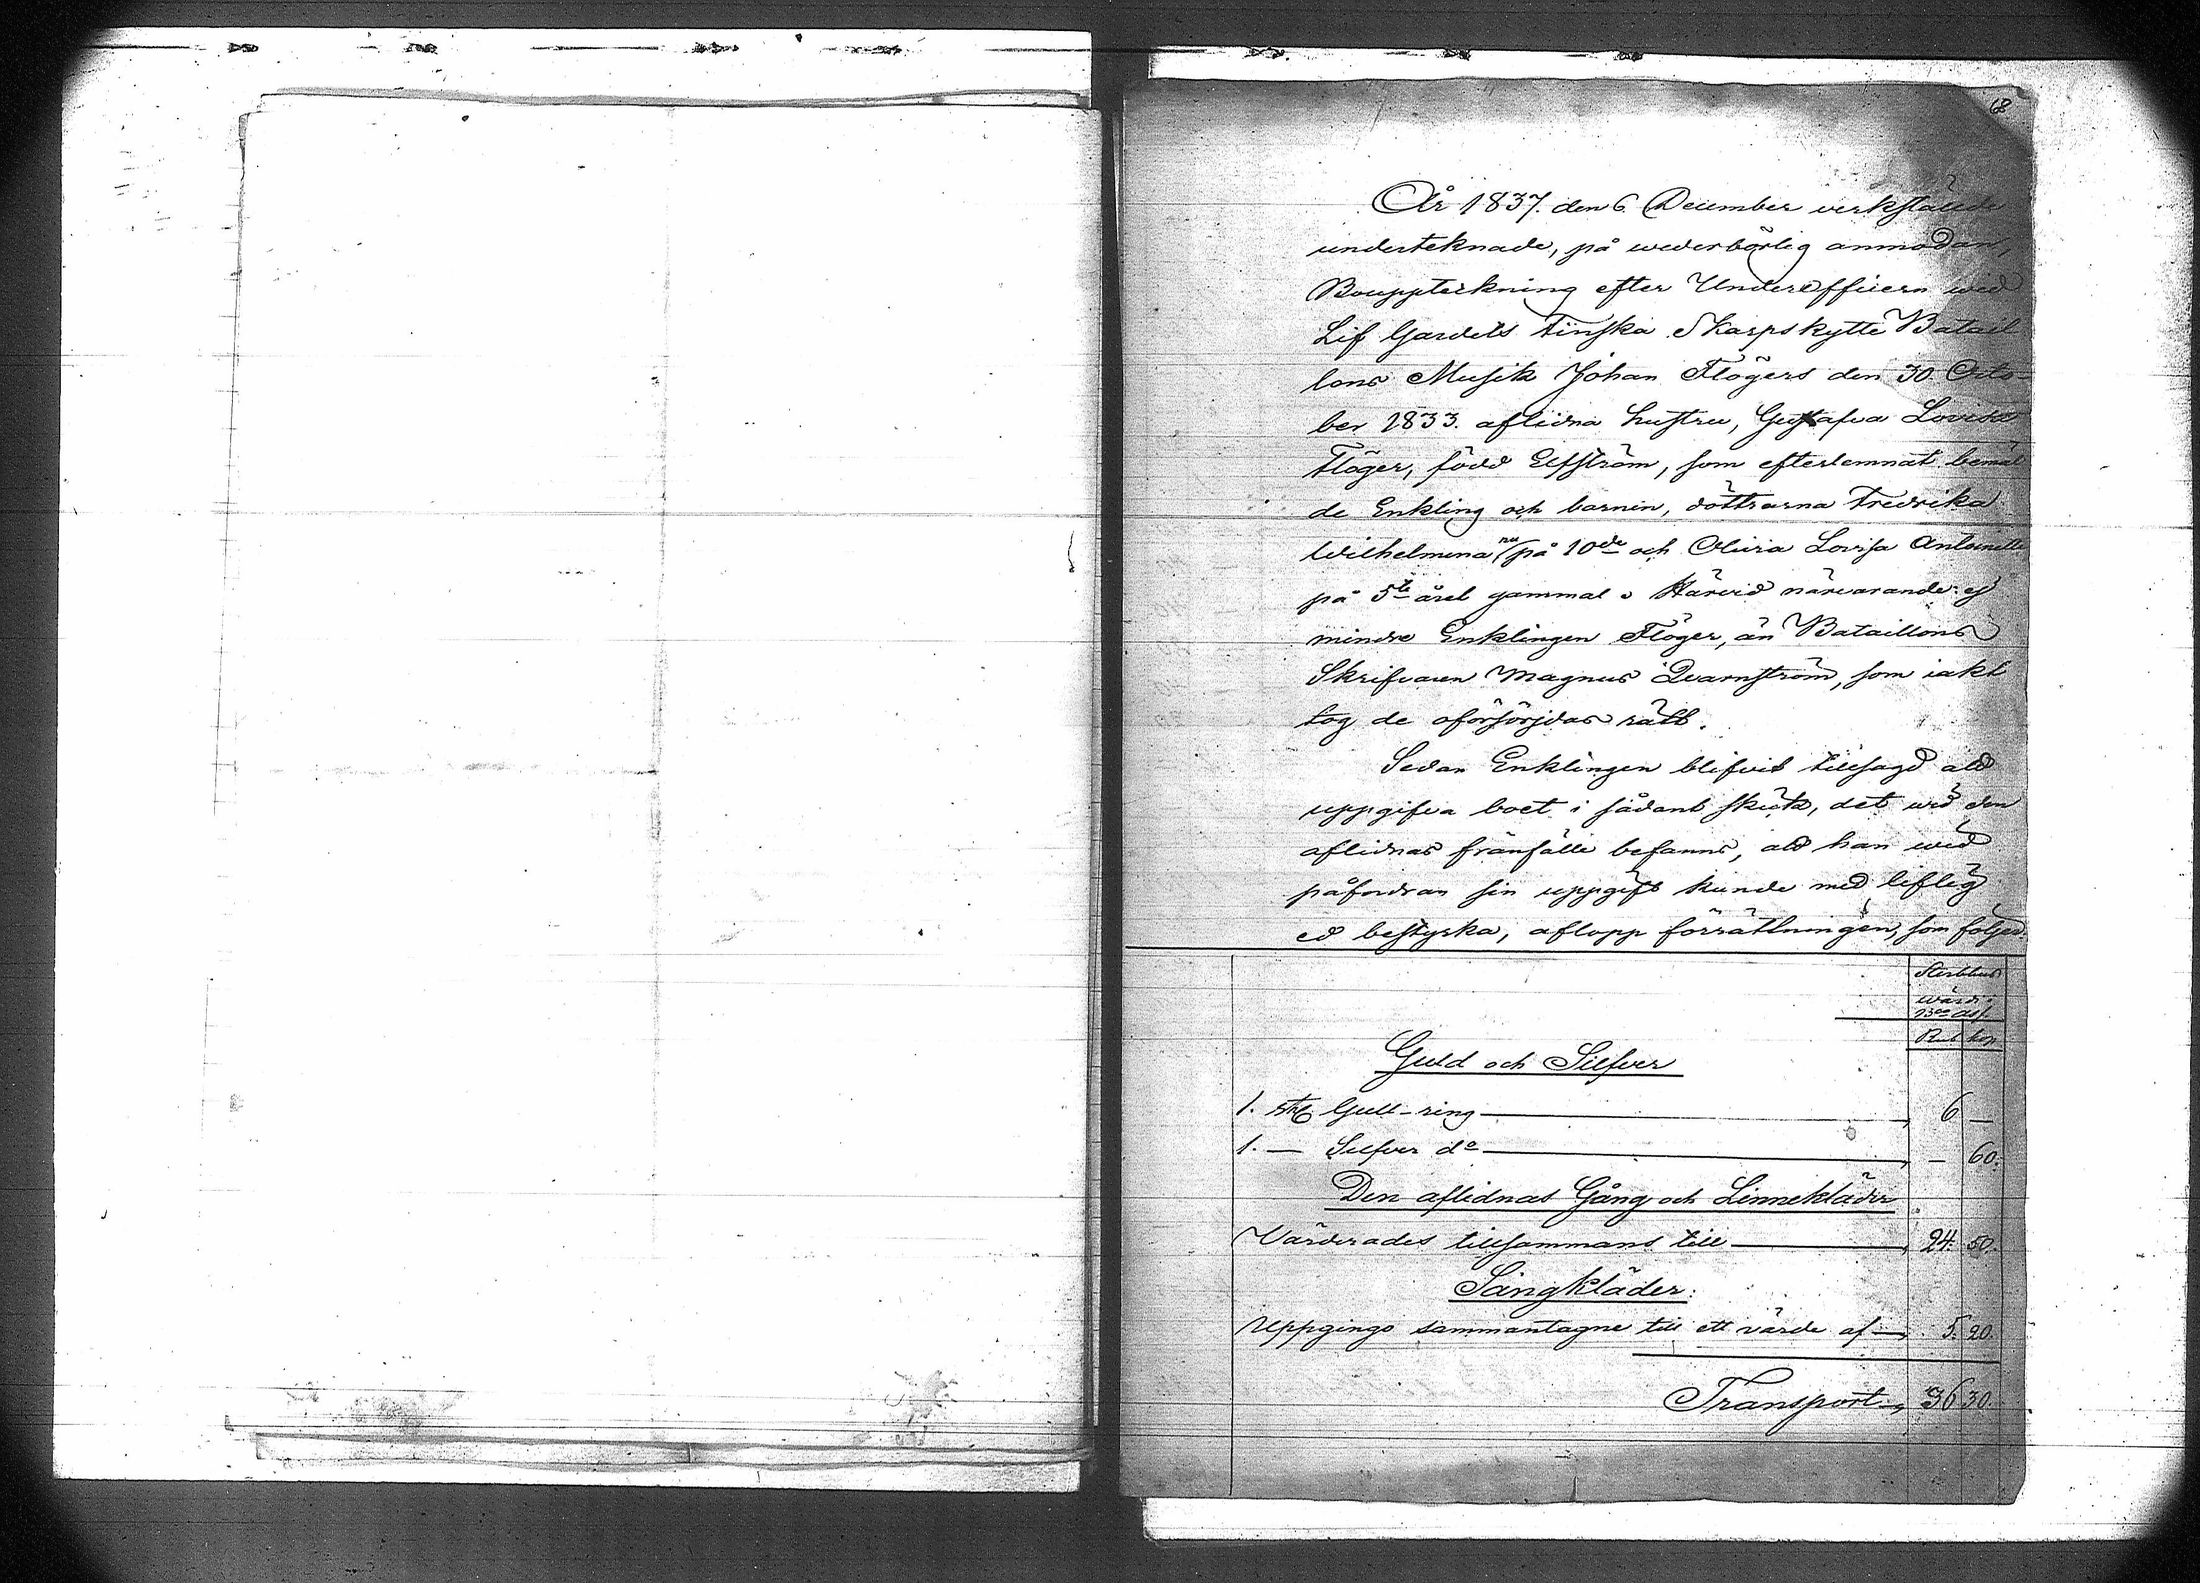 68
År 1837. den 6 December verkstälde
underteknade, på wederbörlig anmodan,
Bouppteckning efter Underofficern wid
Lif Gardets Finska Skarpskytte Batail
lons Musik Johan Flögers den 30 Octo-
ber 1833. aflidna hustru, Gustafva Lovisa
Flöger, född Elfström, som efterlemnat bemäl
de Enkling och barnen, döttrarna Fredrika
Wilhelmina nu på 10de och Olivia Lovisa Antoinette
på 5te året gammal. Härvid närvarande: ej
mindre Enklingen Flöger, än Bataillons
Skrifvaren Magnus Qvarnström, som iakt
tog de oförsörjdas rätt.
Sedan Enklingen blifvit tillsagd att
uppgifva boet i sådant skick, det wid den
aflidnas frånfälle befanns, att han wid
påfordran sin uppgift kunde med liflig
ed bestyrka, aflopp förrättningen, som följer:
Sterbhus
wärde
Rub kop
Guld och Silfver
1. st. Gull-ring 6 —
1. — Silfver do — 60.
Den aflidnas Gång och Linnekläder
Värderades tillsammans till 24. 50.
Sängkläder:
Uppgingo sammantagne till ett värde af 5. 20.
Transport 36 30.